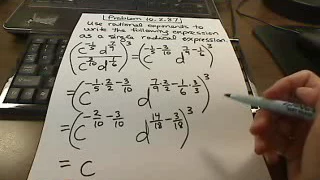 Problem 10.2.87
Use rational exponents to
write the following expression
as a single radical expression.
(c^{-1/5} d^{7/9} / c^{3/10} d^{1/6})^3 = (c^{-1/5 - 3/10} d^{7/9 - 1/6})^3
= (c^{-1/5 · 2/2 - 3/10} d^{7/9 · 2/2 - 1/6 · 3/3})^3
= (c^{-2/10 - 3/10} d^{14/18 - 3/18})^3
= c